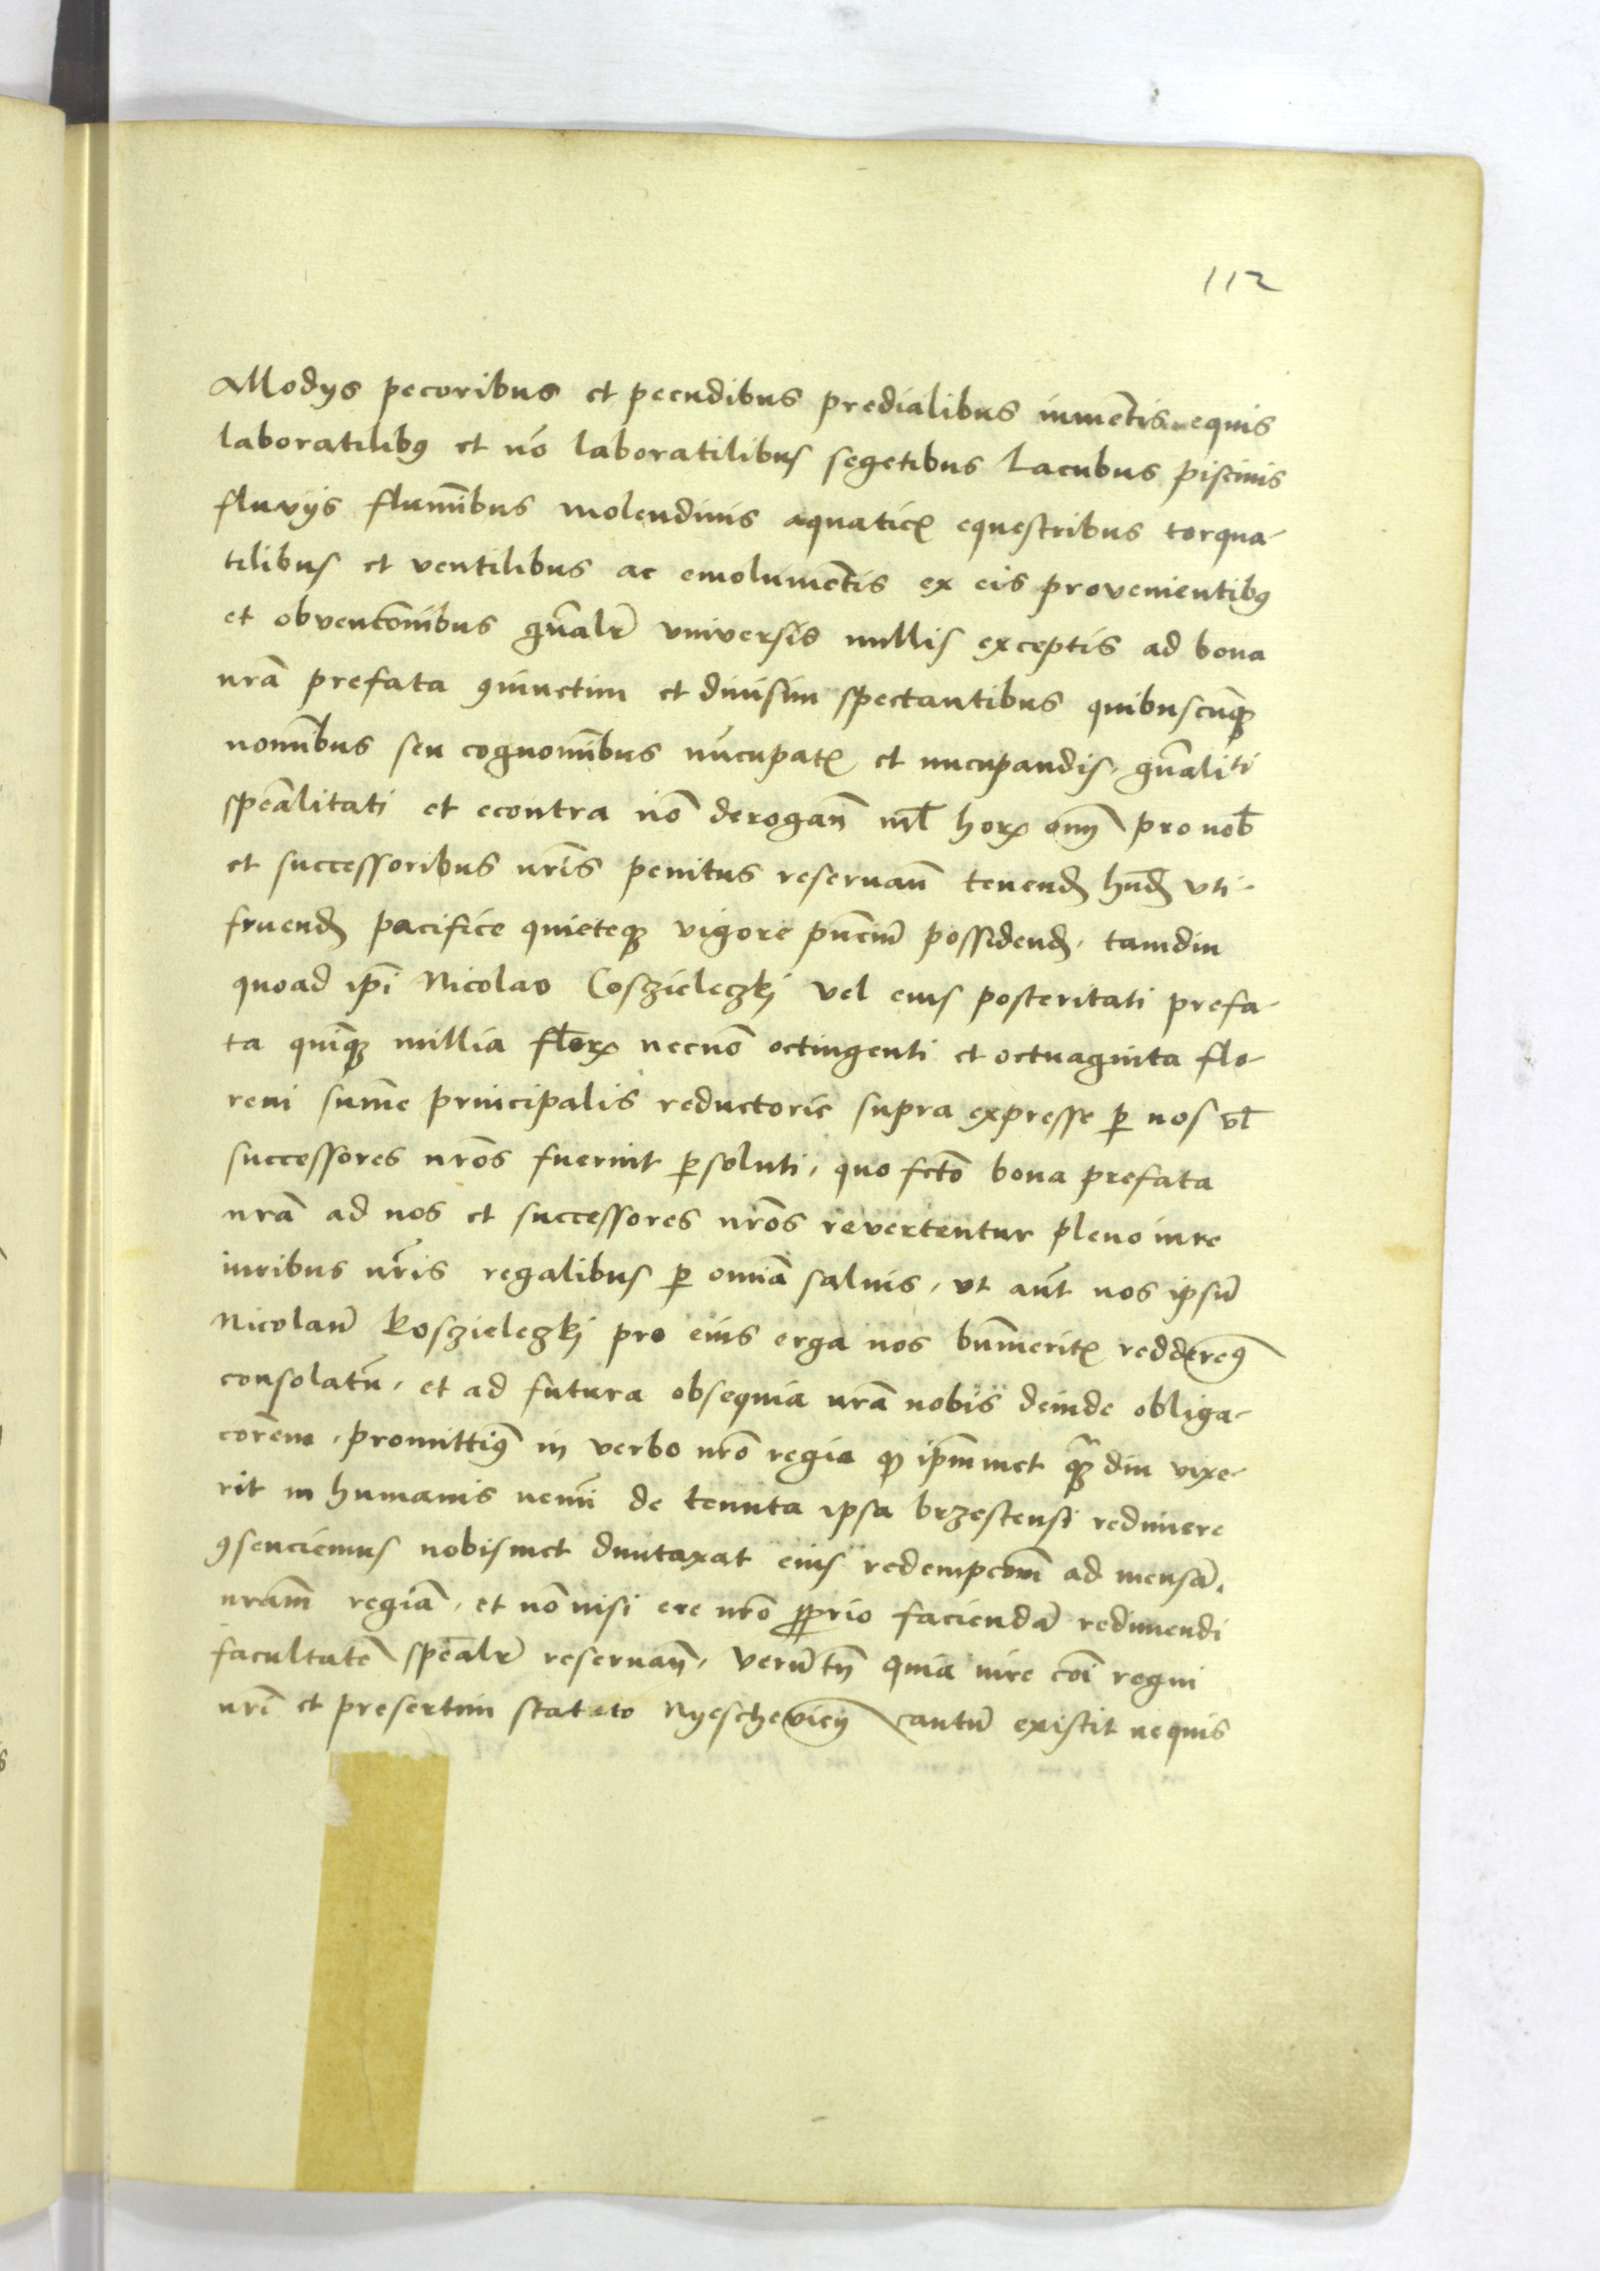 112
Modijs pecoribus et pecudibus predialibus iumẽtis equis
laboratilibꝰ et nõ laboratilibus segetibus Lacubus piscinis
fluvijs flumĩbus molendinis aquaticꝭ equestribus torqua-
tilibus et ventilibus ac emolumẽtis ex eis provenientibꝰ
et obvencõnibus gñalr̃ vniversis nullis exceptis ad bona
nrã prefata ꝯiunctim et divisim spectantibus quibuscũqꝫ
nomĩbus seu cognomĩbus nũcupatꝭ et nucupandis, gñaliti
speãlitati et econtra nõ derogañ nil̃ horꝝ om̃ pro nob̃
et successoribus nrĩs penitus reservañ tenendꝭ hñdꝭ vti-
fruendꝭ pacifice quieteqꝫ vigore pñciũ possidendꝭ, tamdiu
quoad ip̃i Nicolao Coszieleczkj vel eius posteritati prefa-
ta quĩqꝫ millia flõrꝝ necnõ octingenti et octuaginta flo-
reni sum̃e principalis reductorie supra expresse ꝑ nos vl̃
successores nrõs fuerint ꝑsoluti, quo fctõ bona prefata
nrã ad nos et successores nrõs revertentur pleno iure
iuribus nrĩs regalibus ꝑ omĩa salvis, vt aũt nos ipsũ
Nicolaũ Koszieleczkj pro eius erga nos bñmeritꝭ redderemꝰ
consolatũ, et ad futura obsequia nrã nobis deinde obliga-
corem, promittimꝰ in verbo nrõ regio ꝙ ip̃mmet qꝫ̃diu vixe-
rit in humanis nemĩ de tenuta ipsa brzestensi redimere
ꝯsenciemus nobismet duntaxat eius redempcõm̃ ad mensã
nrãm regiã, et nõ nisi ere nrõ ꝓprio faciendã redimendi
facultatẽ speãlr̃ reservañ, verũtñ quia iure cõi regni
nrĩ et presertim statuto Nyeschevicñ cautũ existit nequis